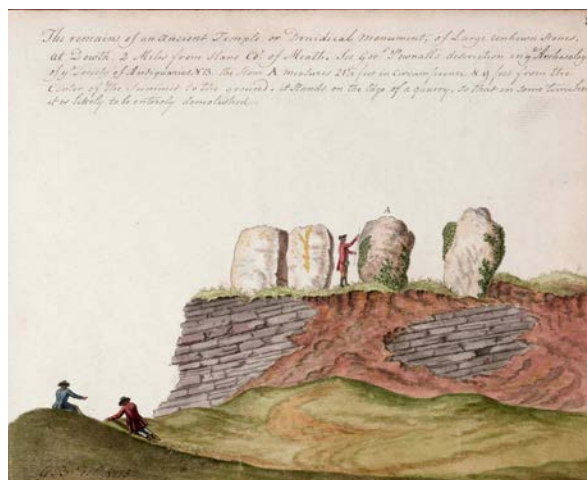 The remains of an ancient Temple or Druidical Monument, of Large unhewn Stones,
at Dowth, 2 Miles from Slane Co. of Meath. See Govr. Pownall's description in ye Archæolog
of ye Society of Antiquaries. NB. the Stone A measures 21½ feet in Circumference & 9 feet from the
Center of the Summit to the ground. it stands on the edge of a quarry, so that in some time
it is likely to be entirely demolished.
A
1775